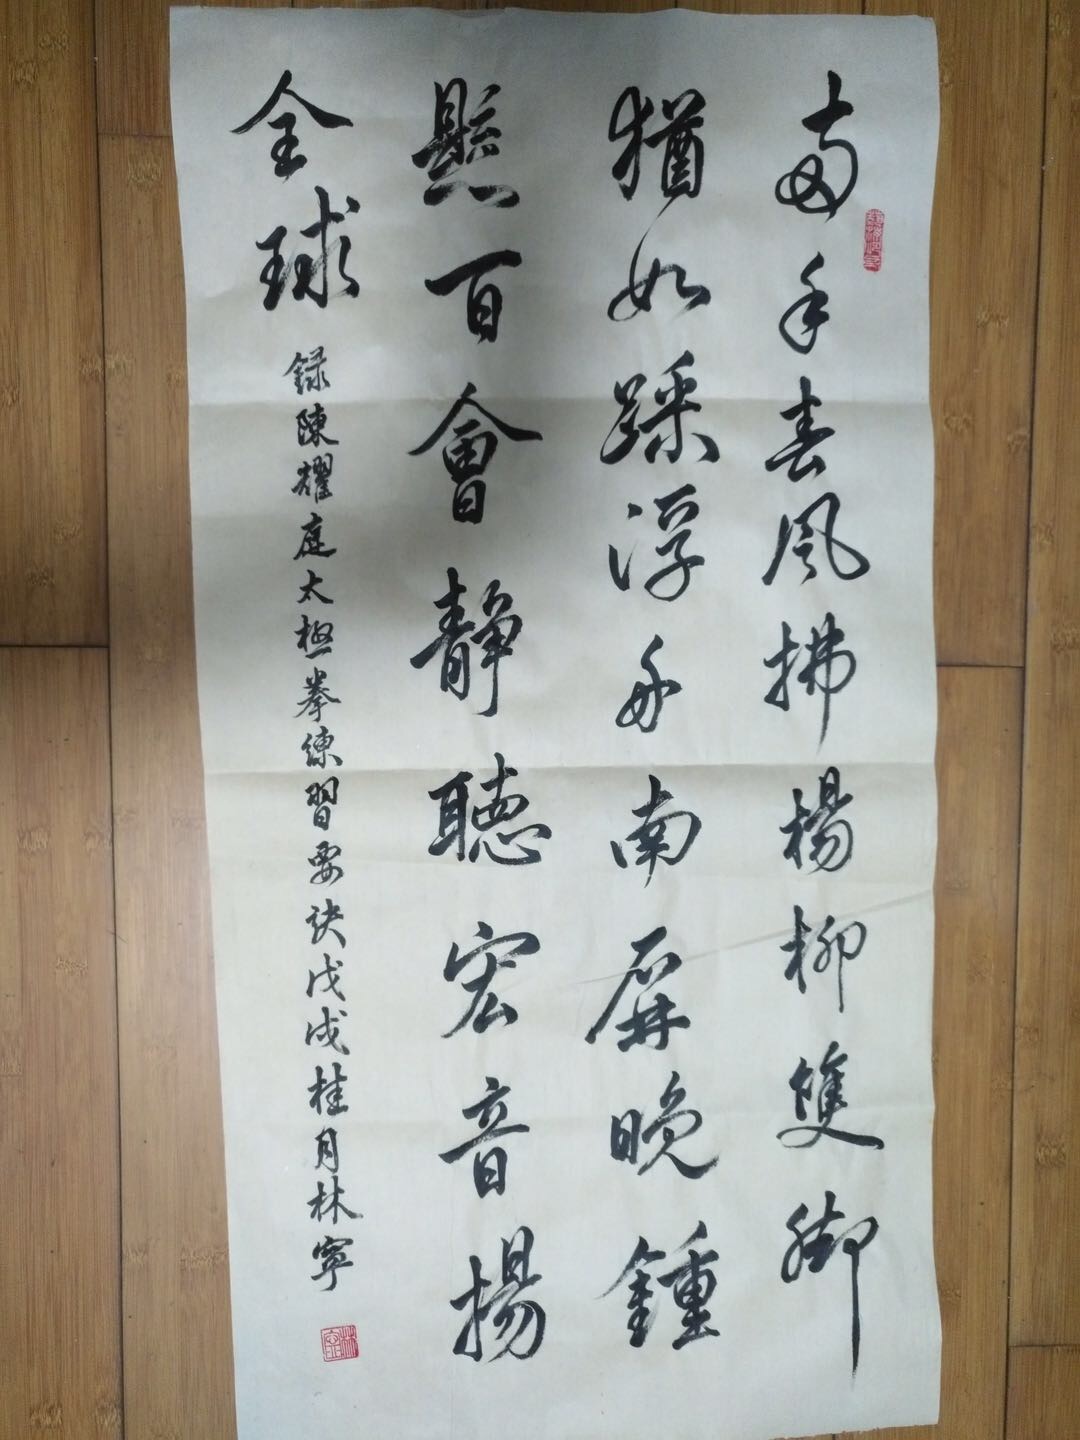 両手春風拂楊柳雙脚
猶如踩浮舟南屏晚鍾
懸百會靜聽宏音揚
全球
録陳耀庭太極拳練習要訣戊戌桂月林寧